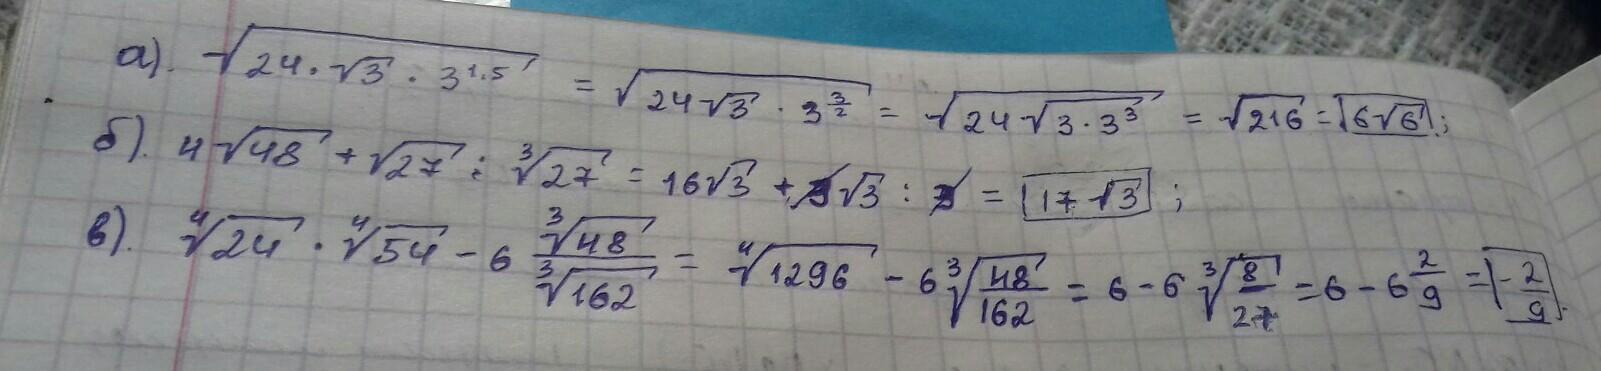 а). √(24·√3·3^1.5) = √(24√3·3^(3/2)) = √(24√(3·3³)) = √216 = 6√6;
б). 4√48 + √27 : ∛27 = 16√3 + 3√3 : 3 = 17√3;
в). ∜24 · ∜54 - 6 ∛48/∛162 = ∜1296 - 6∛(48/162) = 6 - 6∛(8/27) = 6 - 6 2/9 = - 2/9.